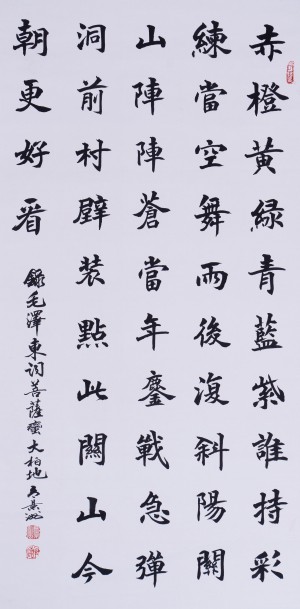 赤橙黃綠青藍紫誰持彩
練當空舞雨後復斜陽關
山陣陣蒼當年鏖戰急彈
洞前村壁裝點此關山今
朝更好看
錄毛澤東詞菩薩蠻大柏地